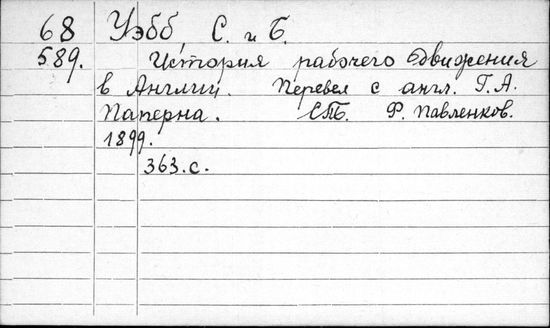 68 Уэбб С. и Б.
589. История рабочего движения
в Англии. Перевел с англ. Г.А.
Паперна. СПБ. Ф. Павленков.
1899.
363.с.